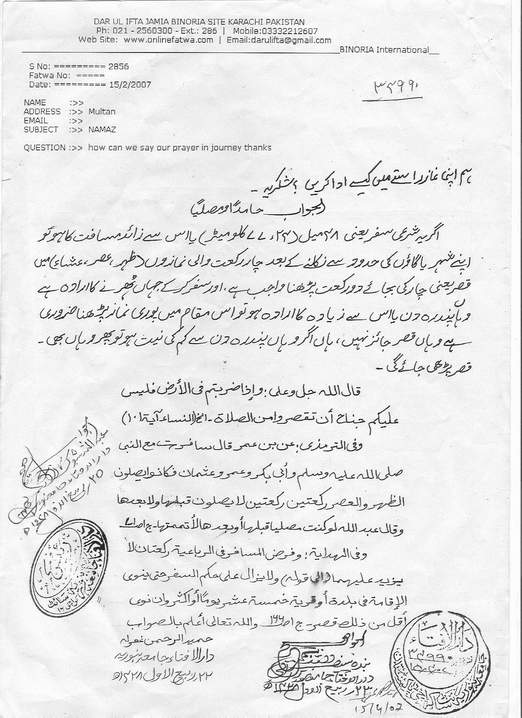 DAR UL IFTA JAMIA BINORIA SITE KARACHI PAKISTAN
Ph: 021 - 2560300 - Ext.: 286 | Mobile:03332212607
Web Site: www.onlinefatwa.com | Email:darulifta@gmail.com
BINORIA International
S No: ========= 2856
Fatwa No: =====
Date: ========= 15/2/2007
۳۴۹۹۰
NAME :>>
ADDRESS :>> Multan
EMAIL :>>
SUBJECT :>> NAMAZ
QUESTION :>> how can we say our prayer in journey thanks
ہم اپنی نماز راستے میں کیسے ادا کریں؟ شکریہ۔
الجواب حامداً ومصلیاً
اگر یہ شرعی سفر یعنی ۴۸ میل (۷۷،۲۴ کلومیٹر) یا اس سے زائد مسافت کا ہو تو
اپنے شہر یا گاؤں کی حدود سے نکلنے کے بعد چار رکعت والی نمازوں (ظہر، عصر، عشاء) میں
قصر یعنی چار کی بجائے دو رکعت پڑھنا واجب ہے، اور سفر کر کے جہاں ٹھہرنے کا ارادہ ہے
وہاں پندرہ دن یا اس سے زیادہ کا ارادہ ہو تو اس مقام میں پوری نماز پڑھنا ضروری
ہے وہاں قصر جائز نہیں، ہاں اگر وہاں پندرہ دن سے کم کی نیت ہو تو پھر وہاں بھی
قصر پڑھی جائے گی۔
قال الله جل وعلى: وإذا ضربتم في الأرض فليس
عليكم جناح أن تقصروا من الصلاة - الخ (النساء آية ۱۰۱)
وفي الترمذي: عن بن عمر قال سافرت مع النبي
صلى الله عليه وسلم وأبي بكر وعمر وعثمان فكانوا يصلون
الظهر والعصر ركعتين ركعتين لا يصلون قبلها ولا بعدها
وقال عبد الله لو كنت مصليا قبلها أو بعدها لأتممتها
وفي الهداية: وفرض المسافر في الرباعية ركعتان لا
يزيد عليهما (الى قوله) ولا يزال على حكم السفر حتى ينوي
الإقامة في بلدة أو قرية خمسة عشر يوماً أو أكثر وإن نوى
أقل من ذلك قصر والله تعالى أعلم بالصواب
دار الافتاء جامعہ بنوریہ
۲۲ ربیع الاول ۱۴۲۸ھ
دار الافتاء